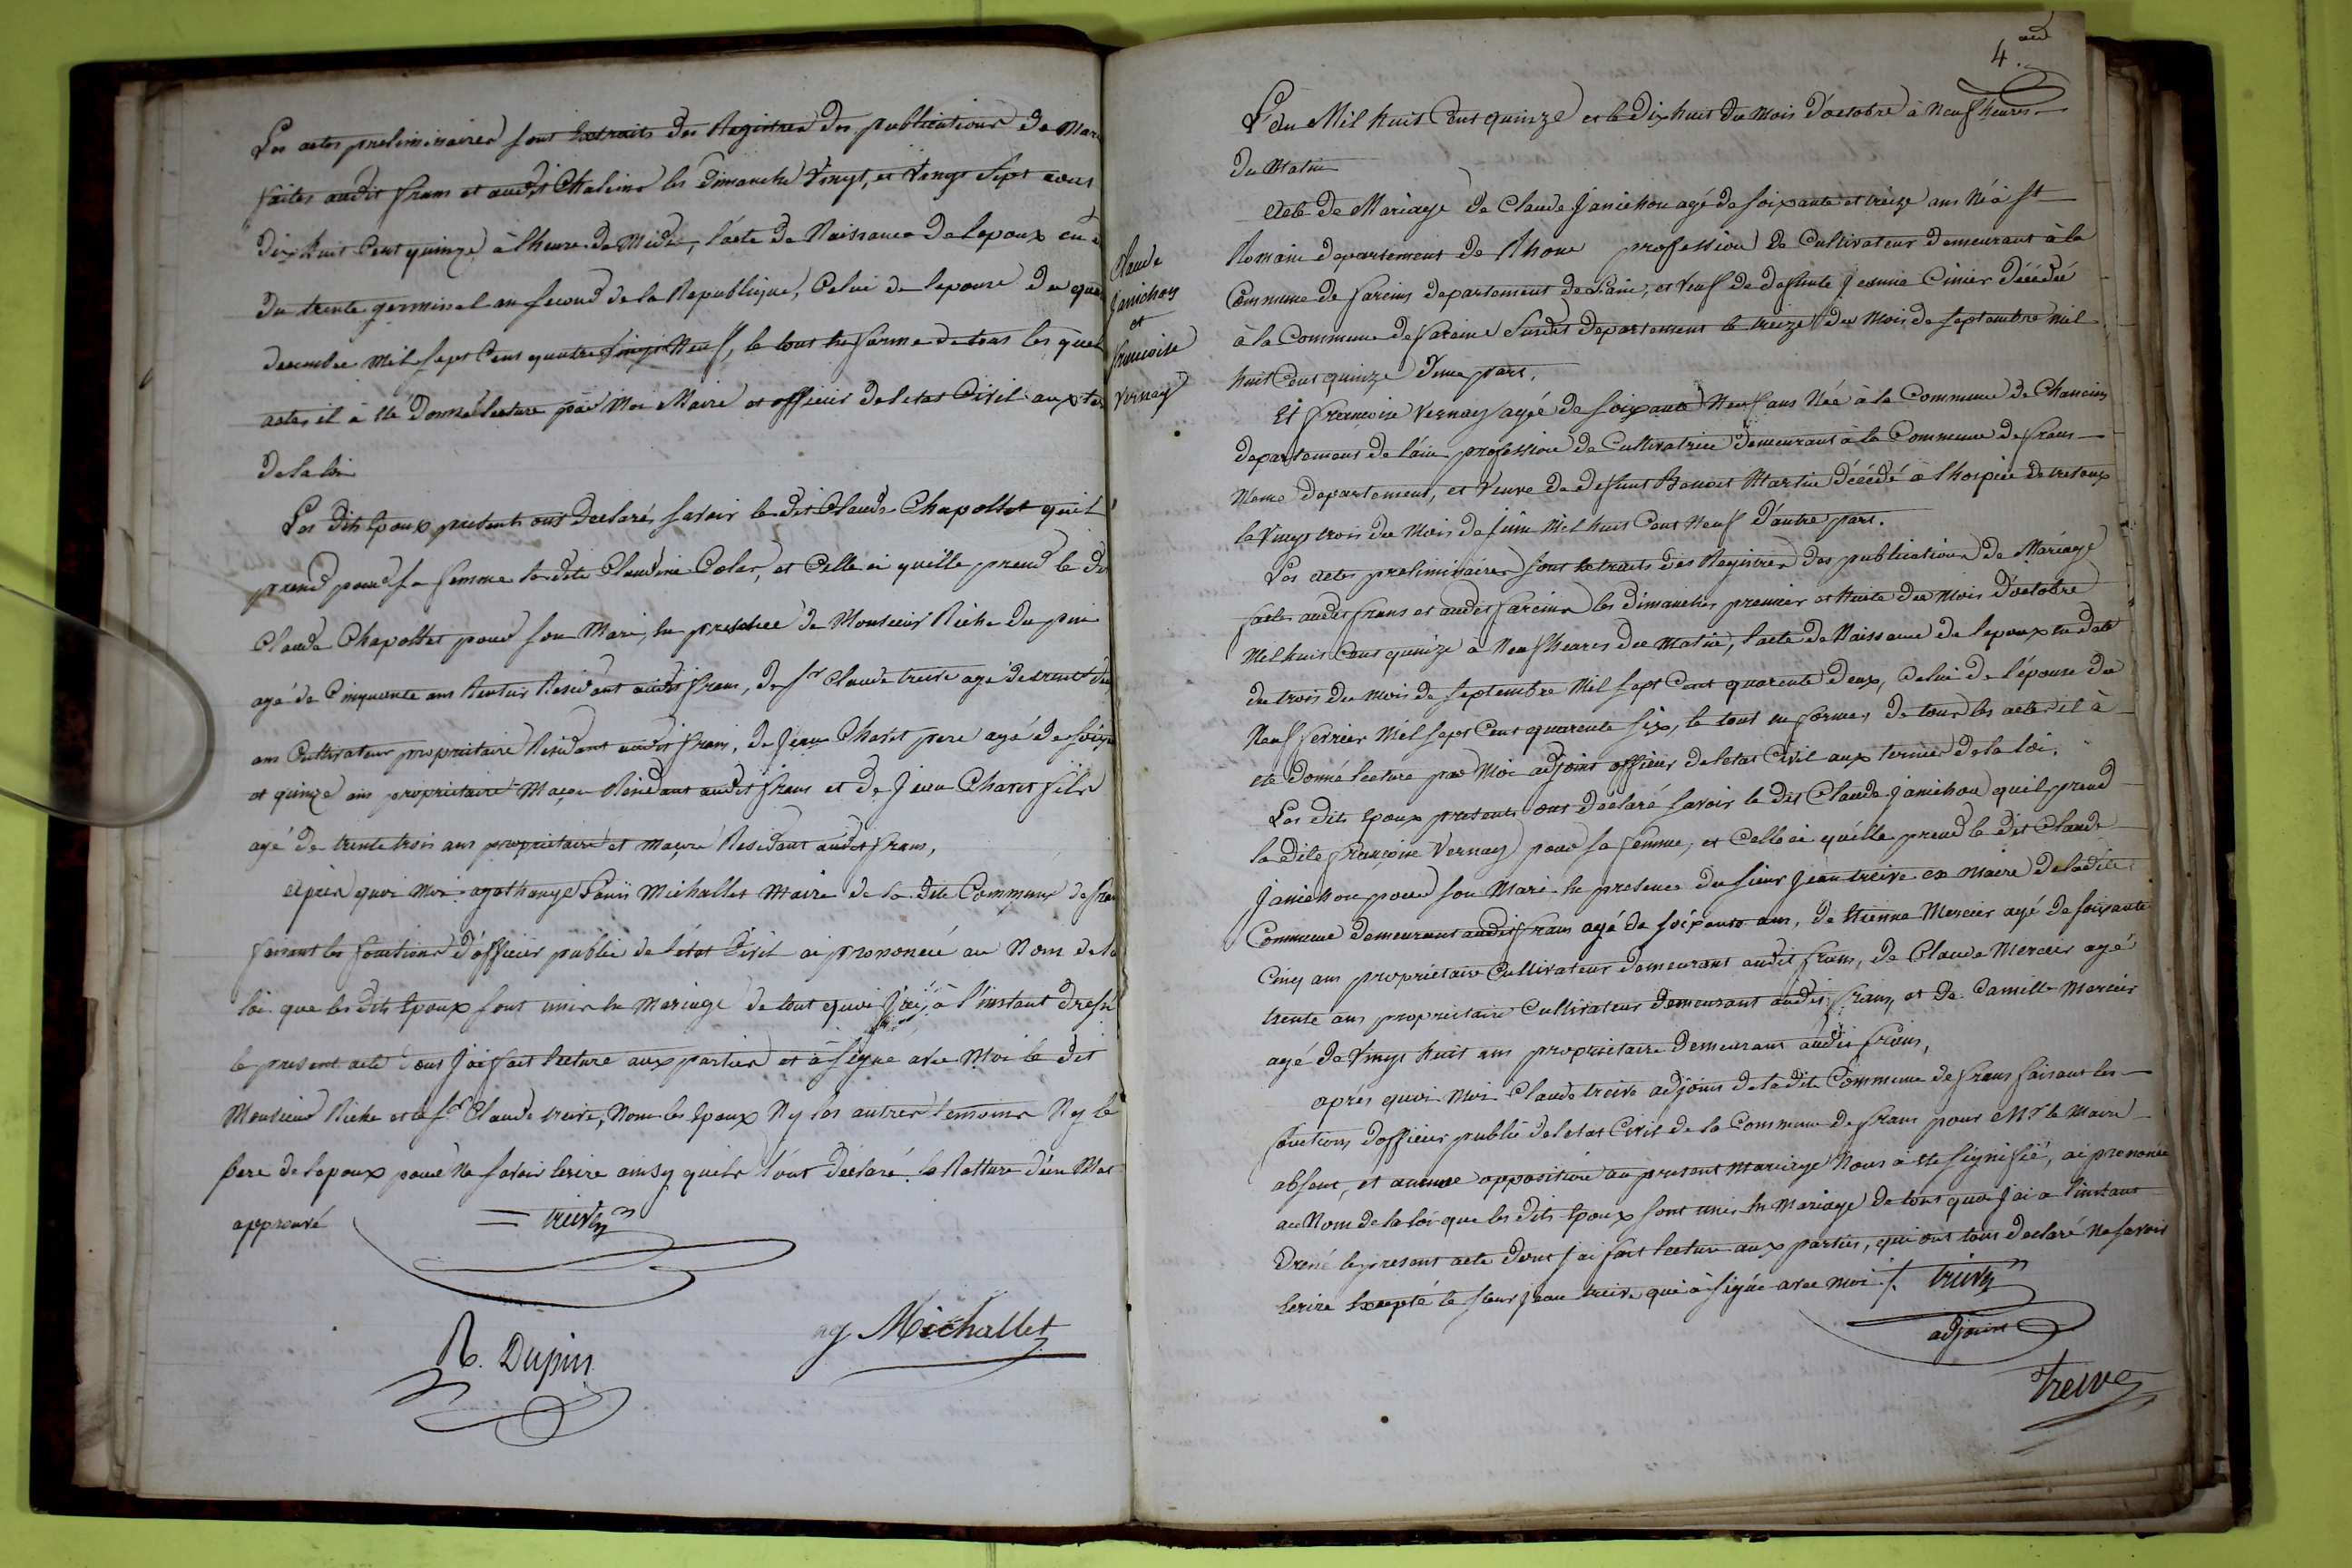 Les actes preliminaires sont Extraits des Registres des publications de Mari
faites audit frans et audit Chaleins les Dimanche Vingt, et Vingt Sept aout
dix huit Cent quinze à lheure de Midi, lacte de Naissance de lepoux en
du trente germinal an second de la Republique, Celui de lepouse du
decembre Mil sept Cent quatre Vingt Neuf, le tout en forme de tous les quel
actes il à été donné lecture par Moi Maire et officier de letat Civil aux ter
de la loi
Les dits Epoux presents ont declaré savoir le dit Claude Chapollet quil
prend pour sa femme la dite Claudine et Celle ci quelle prend le dit
Claude Chapottet pour son Mari, En presence de Monsieur Riche Dupin
agé de Cinquante ans Rentier Residant audit frans, de Sr Claude treive agé de trente
ans Cultivateur propriétaire Residant audit frans, de Jean Charet pere agé de soixante
et quinze ans proprietaire Maçon Residant audit frans et de Jean Charet fils
agé de trente trois ans proprietaire et maçon Residant audit frans,
Après quoi Moi agathange Michallet Maire de la dite Commune de fran
faisant les fonctions d'officier public de l'état Civil ai prononcé au Nom de la
loi que les dits Epoux sont unis En Mariage de tout quoi J'ai à l'instant dressé
le present acte dont J'ai fait lecture aux parties et à signé avec Moi le dit
Monsieur Riche et le Sr Claude treive, Non les Epoux Ny les autres temoins Ny le
pere de lepoux pour Ne savoir Ecrire ainsy quils l'ont declaré la Ratture d'un Mot
approuvé = treive
R. Dupin
ag Michallet
4.
L'an Mil huit Cent quinze et le dix huit du Mois d'octobre à Neuf heures
du Matin
Claude
Janichon
et
francoise
Vernay
Acte de Mariage de Claude Janichon agé de soixante et treize ans Né à St
Romain departement de Rhone profession de Cultivateur demeurant à la
Commune de fareins departement de L'ain, et Veuf de defunte Jeanne Cinier décédée
à la Commune de fareins Susdit departement le treize du Mois de septembre mil
huit Cent quinze d'une part.
Et francoise Vernay agée de soixante Neuf ans Née à la Commune de Chaneins
departement de l'ain profession de Cultivatrice demeurant à la Commune de frans
Meme departement, et Veuve de defunt Benoit Martin décédé à lhospice de trevoux
le Vingt trois du Mois de Juin Mil huit Cent Neuf d'autre part.
Les actes preliminaires sont Extraits des Registres des publications de Mariage
faites audit frans et audit fareins les dimanches premier et huit du Mois d'octobre
Mil huit Cent quinze à Neuf heures du Matin, lacte de Naissance de lepoux en date
du trois du mois de septembre Mil sept Cent quarente deux, Celui de l'épouse du
Neuf fevrier Mil sept Cent quarente six, le tout en forme, de tous les actes il à
ete donné lecture par Moi adjoint officier de letat Civil aux termes de la loi.
Les dits Epoux presents ont declaré savoir le dit Claude Janichon quil prend
la dite françoise Vernay pour sa femme, et Celle ci quelle prend le dit Claude
Janichon pour son Mari En presence du sieur Jean treive ex maire de ladite
Commune demeurant audit frans agé de soixante ans, de Etienne Mercier agé de soixante
Cinq ans propriétaire Cultivateur demeurant audit frans, de Claude Mercier agé
trente ans proprietaire Cultivateur demeurant audit frans, et de Camille Mercier
agé de Vingt huit ans proprietaire demeurant audit frans,
après quoi Moi Claude treive adjoint de ladite Commune de frans faisant les
fonctions d'officier public de letat Civil de la Commune de frans pour Mr le Maire
absent, et aucune opposition au present mariage Nous à été signifié, ai prononcé
au Nom de la loi que les dits Epoux sont unis En Mariage de tout quoi J'ai à l'instant
dressé le present acte dont J'ai fait lecture aux parties, qui ont tous declaré Ne savoir
Ecrire Excepté le sieur Jean treive qui à signé avec moi /. treive
adjoint
Treive